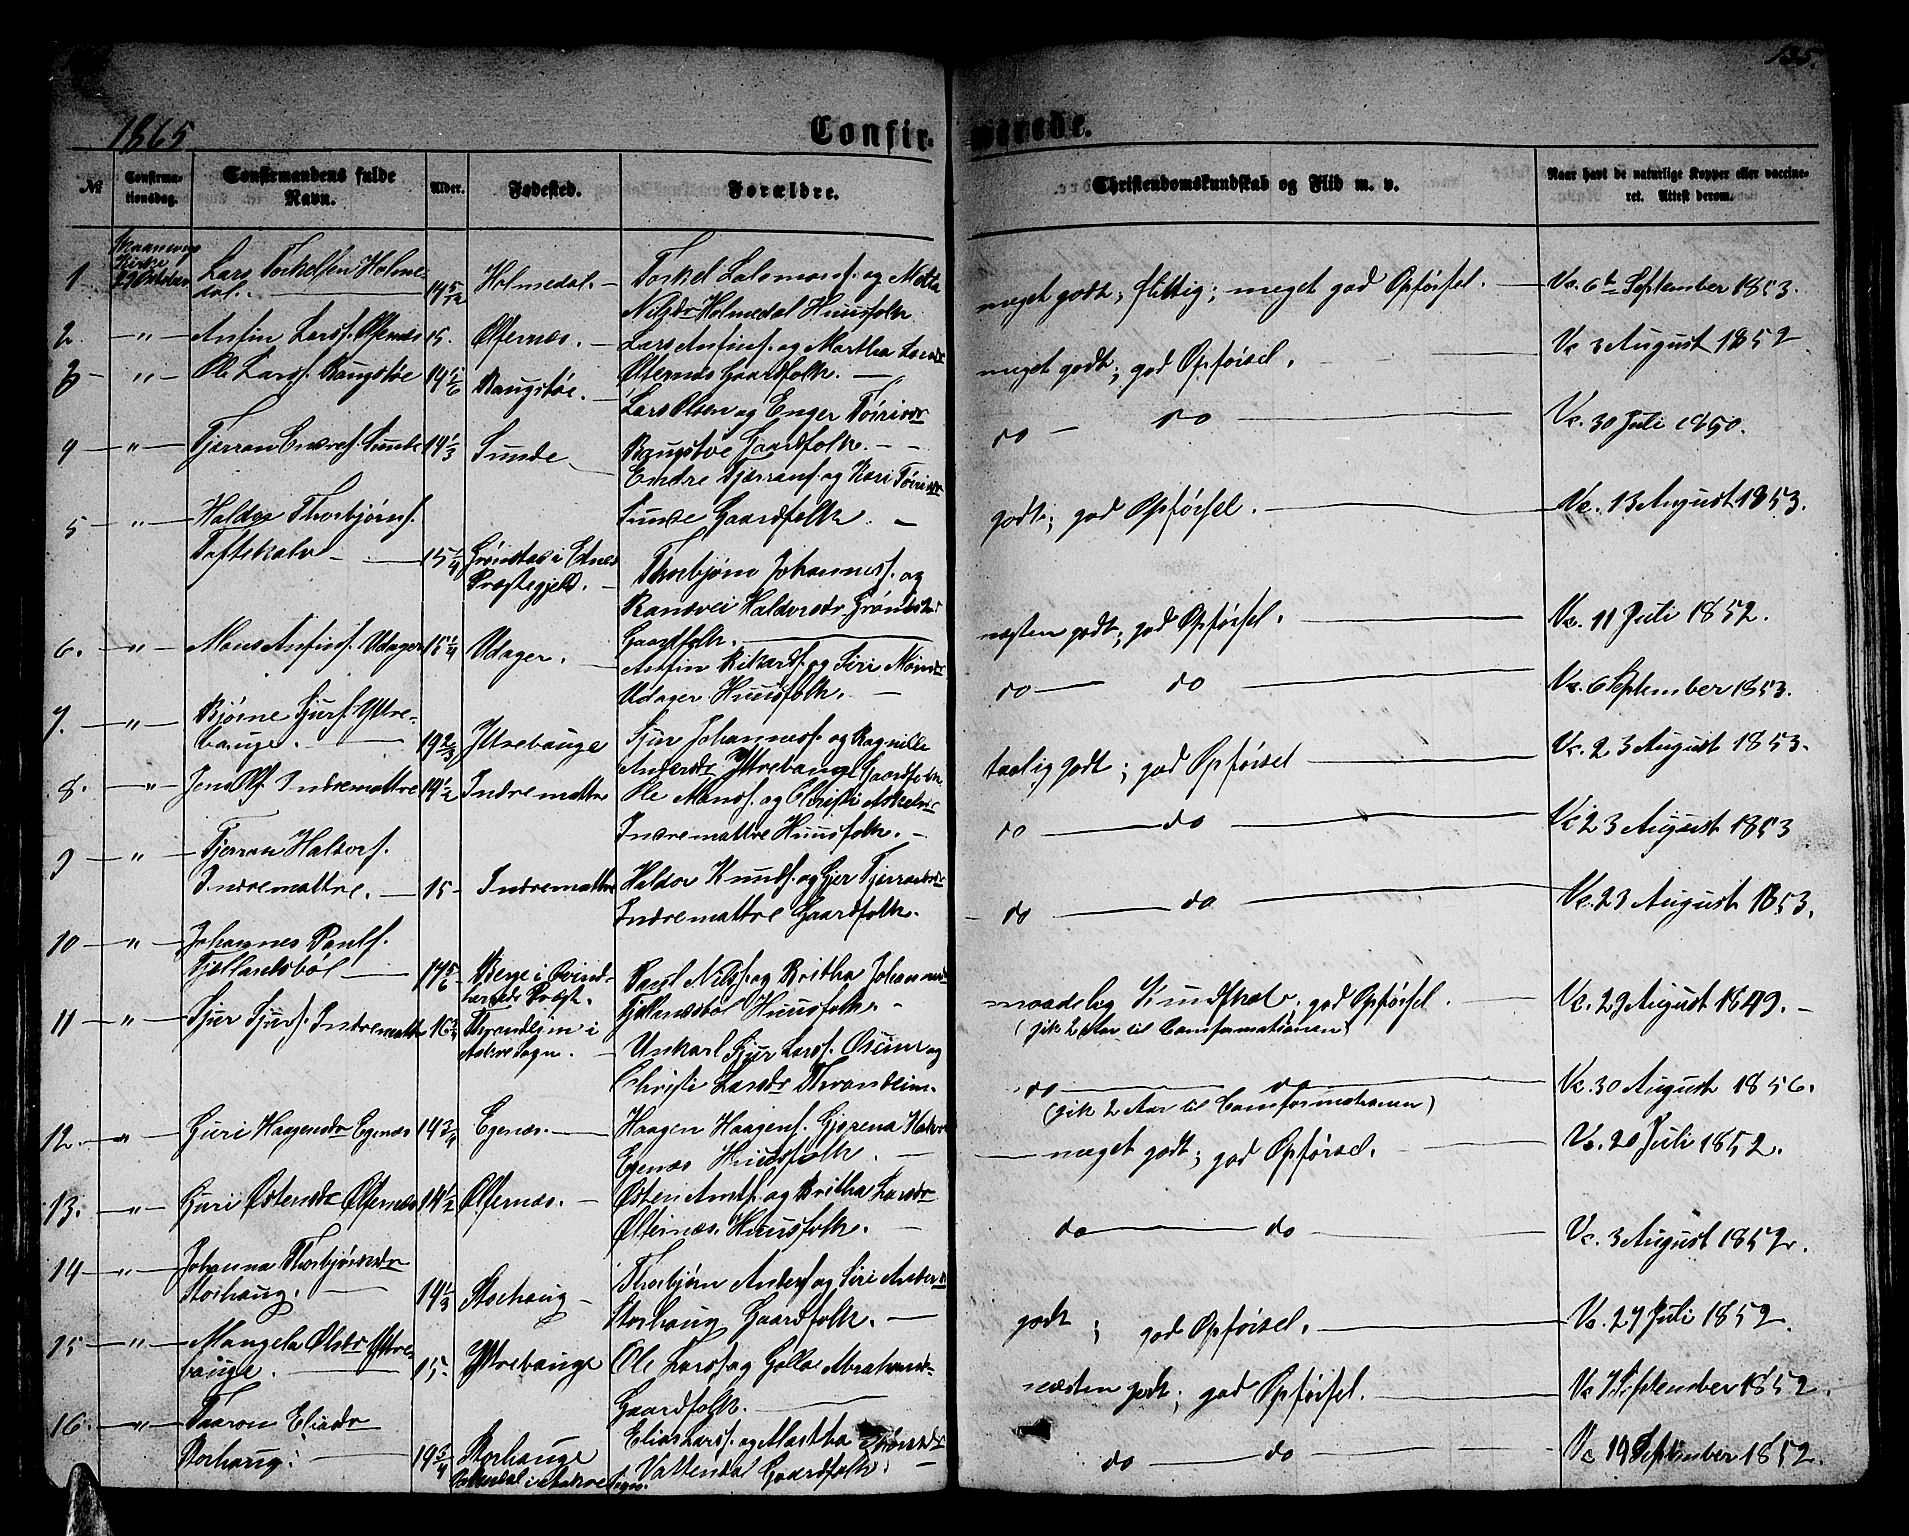 135.
1865
Confir- merede.
No
Confirmationsdag.
Confirmandens fulde Navn.
Alder.
Fødested.
Forældre.
Christendomskundskab og Flid m. v.
Naar havt de naturlige Kopper eller vaccineret. Attest derom.
Skaanevig Kirke
1 29 Oktober Lars Torkelsen Holmedal. 14 5/12 Holmedal. Torkel Salomonsf. og Metta
Nilsdr Holmedal Huusfolk meget godt; flittig; meget god Opførsel. Vc. 6te September 1853.
2. " Anfin Larsf. Ølfernæs 15. Ølfernæs. Lars Anfinsf. og Martha Larsdr
Ølfernæs Gaardfolk. meget godt; god Opførsel. Vc 3 August 1852
3 " Ole Larsf. Raugstøe 14 5/6 Raugstøe. Lars Olsen og Enger Tørrisdr
Raugstøe Gaardfolk. do do Vc. 30 Juli 1850.
4 " Tjerran Endref. Sunde 14 1/3 Sunde Endre Tjerransf. og Kari Tørrisdr
Sunde Gaardfolk. godt; god Opførsel. Vc. 13 August 1853.
5 " Haldor Thorbjørnsf.
Toftekalv 15 1/4 Grønstad i Etnes
Præstegjeld. Thorbjørn Johannesf. og
Randvei Haldorsdr Grønstad
Gaardfolk. næsten godt; god Opførsel. Vc. 11 Juli 1852.
6. " Mons Anfinsf. Udager 15 1/4 Udager. Anfin Rikardsf. og Siri Monsdr
Udager Huusfolk. do do Vc. 6 September 1853.
7. " Bjørne Sjursf. Yttre-
bauge. 19 2/3 Yttrebauge Sjur Johannesf. og Ragnille
Andersdr Yttrebauge Gaardfolk. taalig godt; god Opførsel Vc. 23 August 1853.
8. " Jens Olsf. Indremattre 14 1/2 Indremattre Ole Monsf. og Christi Askelsdr
Indremattre Huusfolk. do do Vc 23 August 1853
9 " Tjerran Haldorsf.
Indremattre. 15 Indremattre Haldor Knudsf. og Gjer Tjerransdr
Indremattre Gaardfolk. do do Vc. 23 August 1853.
10 " Johannes Paulsf.
Fjellandsbøl 14 5/6 Berge i Qvind-
herreds Præst. Paul Nilsf. og Britha Johannesdr
Fjellandsbøl Huusfolk. maadelig Kundskab, god Opførsel.
(gik 2 Aar til Comformationen) Vc. 29 August 1849.
11 " Sjur Sjursf. Indremattre 16 3/4 Thrandeim i
Aakre Sogn. Unkarl Sjur Larsf. Oscim og
Christi Larsdr Thrandeim. do do
(gik 2 Aar til Comformationen) Vc. 30 August 1856.
12. " Guri Haagensdr Egenæs 14 3/4 Egenæs. Haagen Haagensf. Gjorena
Egenæs Huusfolk. meget godt; god Opførsel. Vc. 20 Juli 1852.
13. " Guri Østensdr Ølfernæs 14 1/2 Ølfernæs. Østen Arntsf. og Britha Larsdr
Ølfernæs Huusfolk. do do Vc. 3 August 1852.
14 " Johanna Thorbjørnsdr
Storhaug. 14 1/3 Storhaug Thorbjørn Andersf og Siri Andersdr
Storhaug Gaardfolk. godt; god Opførsel. Vc. 27 Juli 1852
15 " Mangela Olsdr Yttre-
bauge. 15 Yttrebauge Ole Larsf og Golla Abrahamsdr
Gaardfolk. næsten godt; god Opførsel. Vc 7 September 1852.
16. " Taaron Eliasdr
Storhaug. 19 3/4 Storhauge
Vattendal i Aakre Sogn. Elias Larsf. og Martha
Vattendal Gaardfolk. do do Vc 19 September 1852.